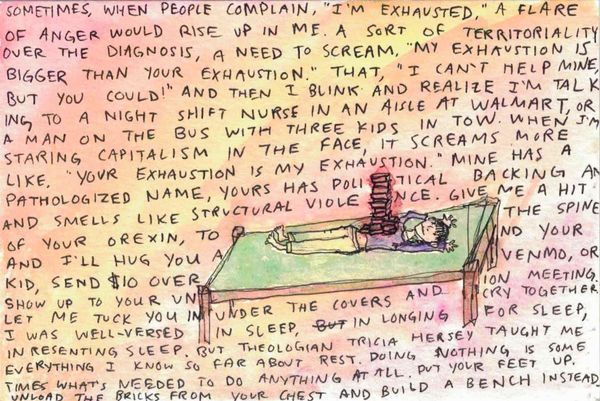 SOMETIMES, WHEN PEOPLE COMPLAIN, "I'M EXHAUSTED," A FLARE
OF ANGER WOULD RISE UP IN ME. A SORT OF TERRITORIALITY
OVER THE DIAGNOSIS, A NEED TO SCREAM, "MY EXHAUSTION IS
BIGGER THAN YOUR EXHAUSTION." THAT, "I CAN'T HELP MINE,
BUT YOU COULD!" AND THEN I BLINK AND REALIZE I'M TALK
ING TO A NIGHT SHIFT NURSE IN AN AISLE AT WALMART, OR
A MAN ON THE BUS WITH THREE KIDS IN TOW. WHEN I'M
STARING CAPITALISM IN THE FACE, IT SCREAMS MORE
LIKE, "YOUR EXHAUSTION IS MY EXHAUSTION." MINE HAS A
PATHOLOGIZED NAME, YOURS HAS POLI TICAL BACKING AN
AND SMELLS LIKE STRUCTURAL VIOLE NCE. GIVE ME A HIT
OF YOUR OREXIN, TO THE SPINE
AND I'LL HUG YOU A ND YOUR
KID, SEND $10 OVER VENMO, OR
SHOW UP TO YOUR UN ION MEETING.
LET ME TUCK YOU IN UNDER THE COVERS AND CRY TOGETHER
I WAS WELL-VERSED IN SLEEP, BUT IN LONGING FOR SLEEP,
IN RESENTING SLEEP. BUT THEOLOGIAN TRICIA HERSEY TAUGHT ME
EVERYTHING I KNOW SO FAR ABOUT REST. DOING NOTHING IS SOME
TIMES WHAT'S NEEDED TO DO ANYTHING AT ALL. PUT YOUR FEET UP.
UNLOAD THE BRICKS FROM YOUR CHEST AND BUILD A BENCH INSTEAD